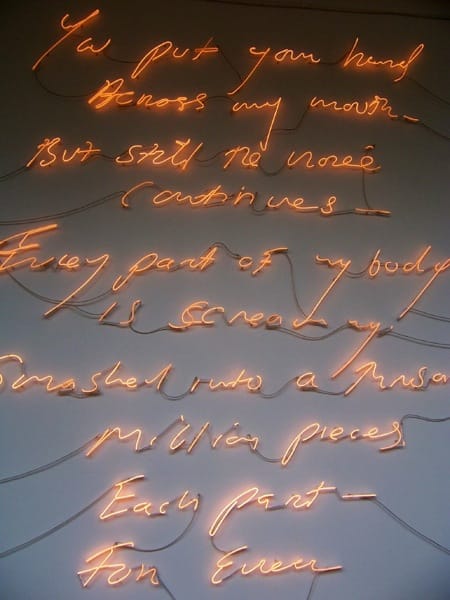 You put your hand
Across my mouth -
But still the noise
continues -
Every part of my body
is screaming
Smashed into a thousa
million pieces
Each part -
For Ever